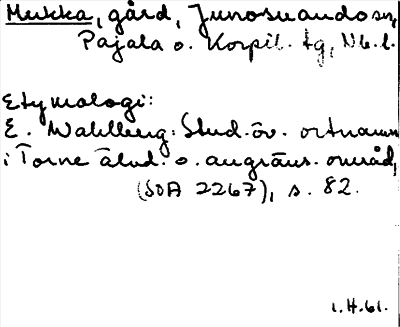 Mukka, gård, Junosuando sn,
Pajala o. Korpil. tg, Nb.l.
Etymologi:
E. Wahlberg: Stud. öv. ortnamn
i Torne älvd. o. angräns. områd,
(SOA 2267), s. 82.
1.H.61.